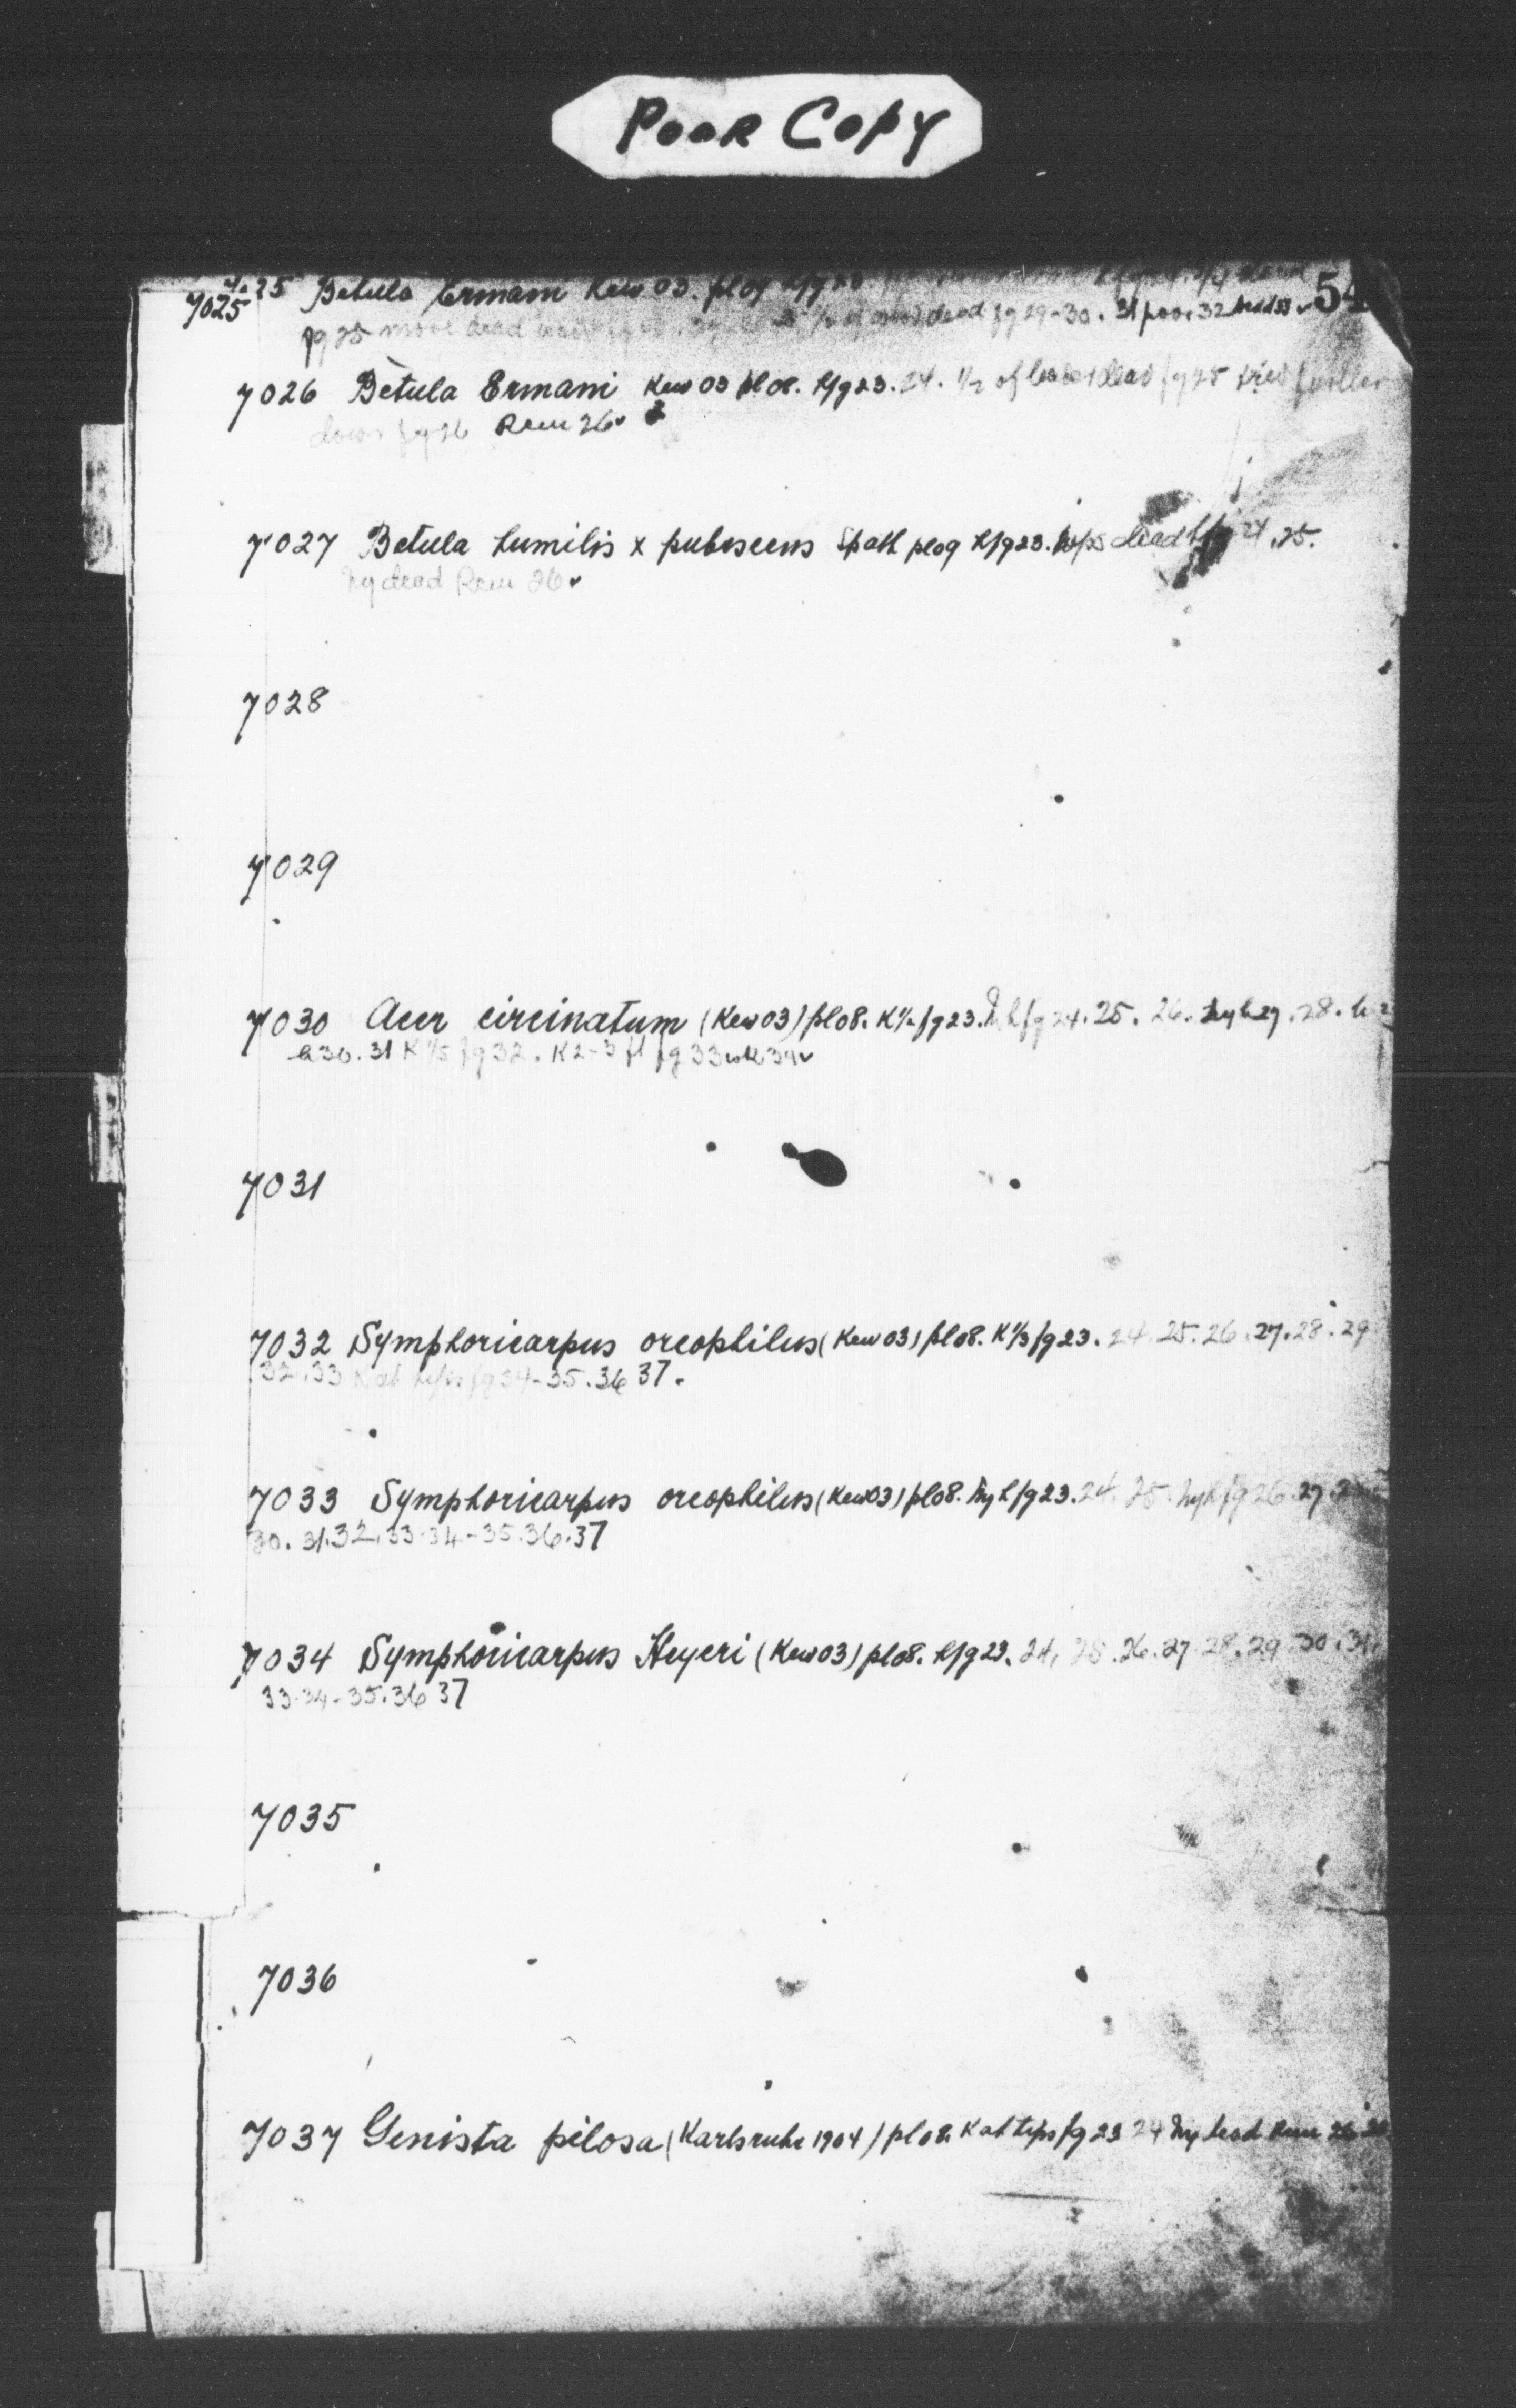 POOR COPY
54
7025 Betula Ermani Kew 03. pl 09 h fg 23 dead
7025
fg 25 more dead dead fg 29-30. 31 poor 32 dead 33
7026 Betula Ermani Kew 03 pl 08. h fg 23. 24. 1/2 of leader dead fg 25 died further
down fg 26 Rem 26
7027 Betula humilis x pubescens Spath pl 09 h fg 23. tips dead h fg 24. 25.
ny dead Rem 26
7028
7029
7030 Acer circinatum (Kew 03) pl 08. K 1/2 fg 23. h fg 24. 25. 26. ny h 27. 28.
30. 31 K 1/5 fg 32. K 2-3 ft fg 33
7031
7032 Symphoricarpus oreophilus (Kew 03) pl 08. K 1/3 fg 23. 24. 25. 26. 27. 28. 29
32. 33 K at tips fg 34-35. 36 37.
7033 Symphoricarpus oreophilus (Kew 03) pl 08. ny h fg 23. 24. 25. ny h fg 26. 27.
30. 31. 32. 33-34-35. 36. 37
7034 Symphoricarpus Heyeri (Kew 03) pl 08. h fg 23. 24, 25. 26. 27. 28. 29. 30. 31.
33-34-35. 36 37
7035
7036
7037 Genista pilosa (Karlsruhe 1904) pl 08. K at tips fg 23 24 ny dead Rem 26